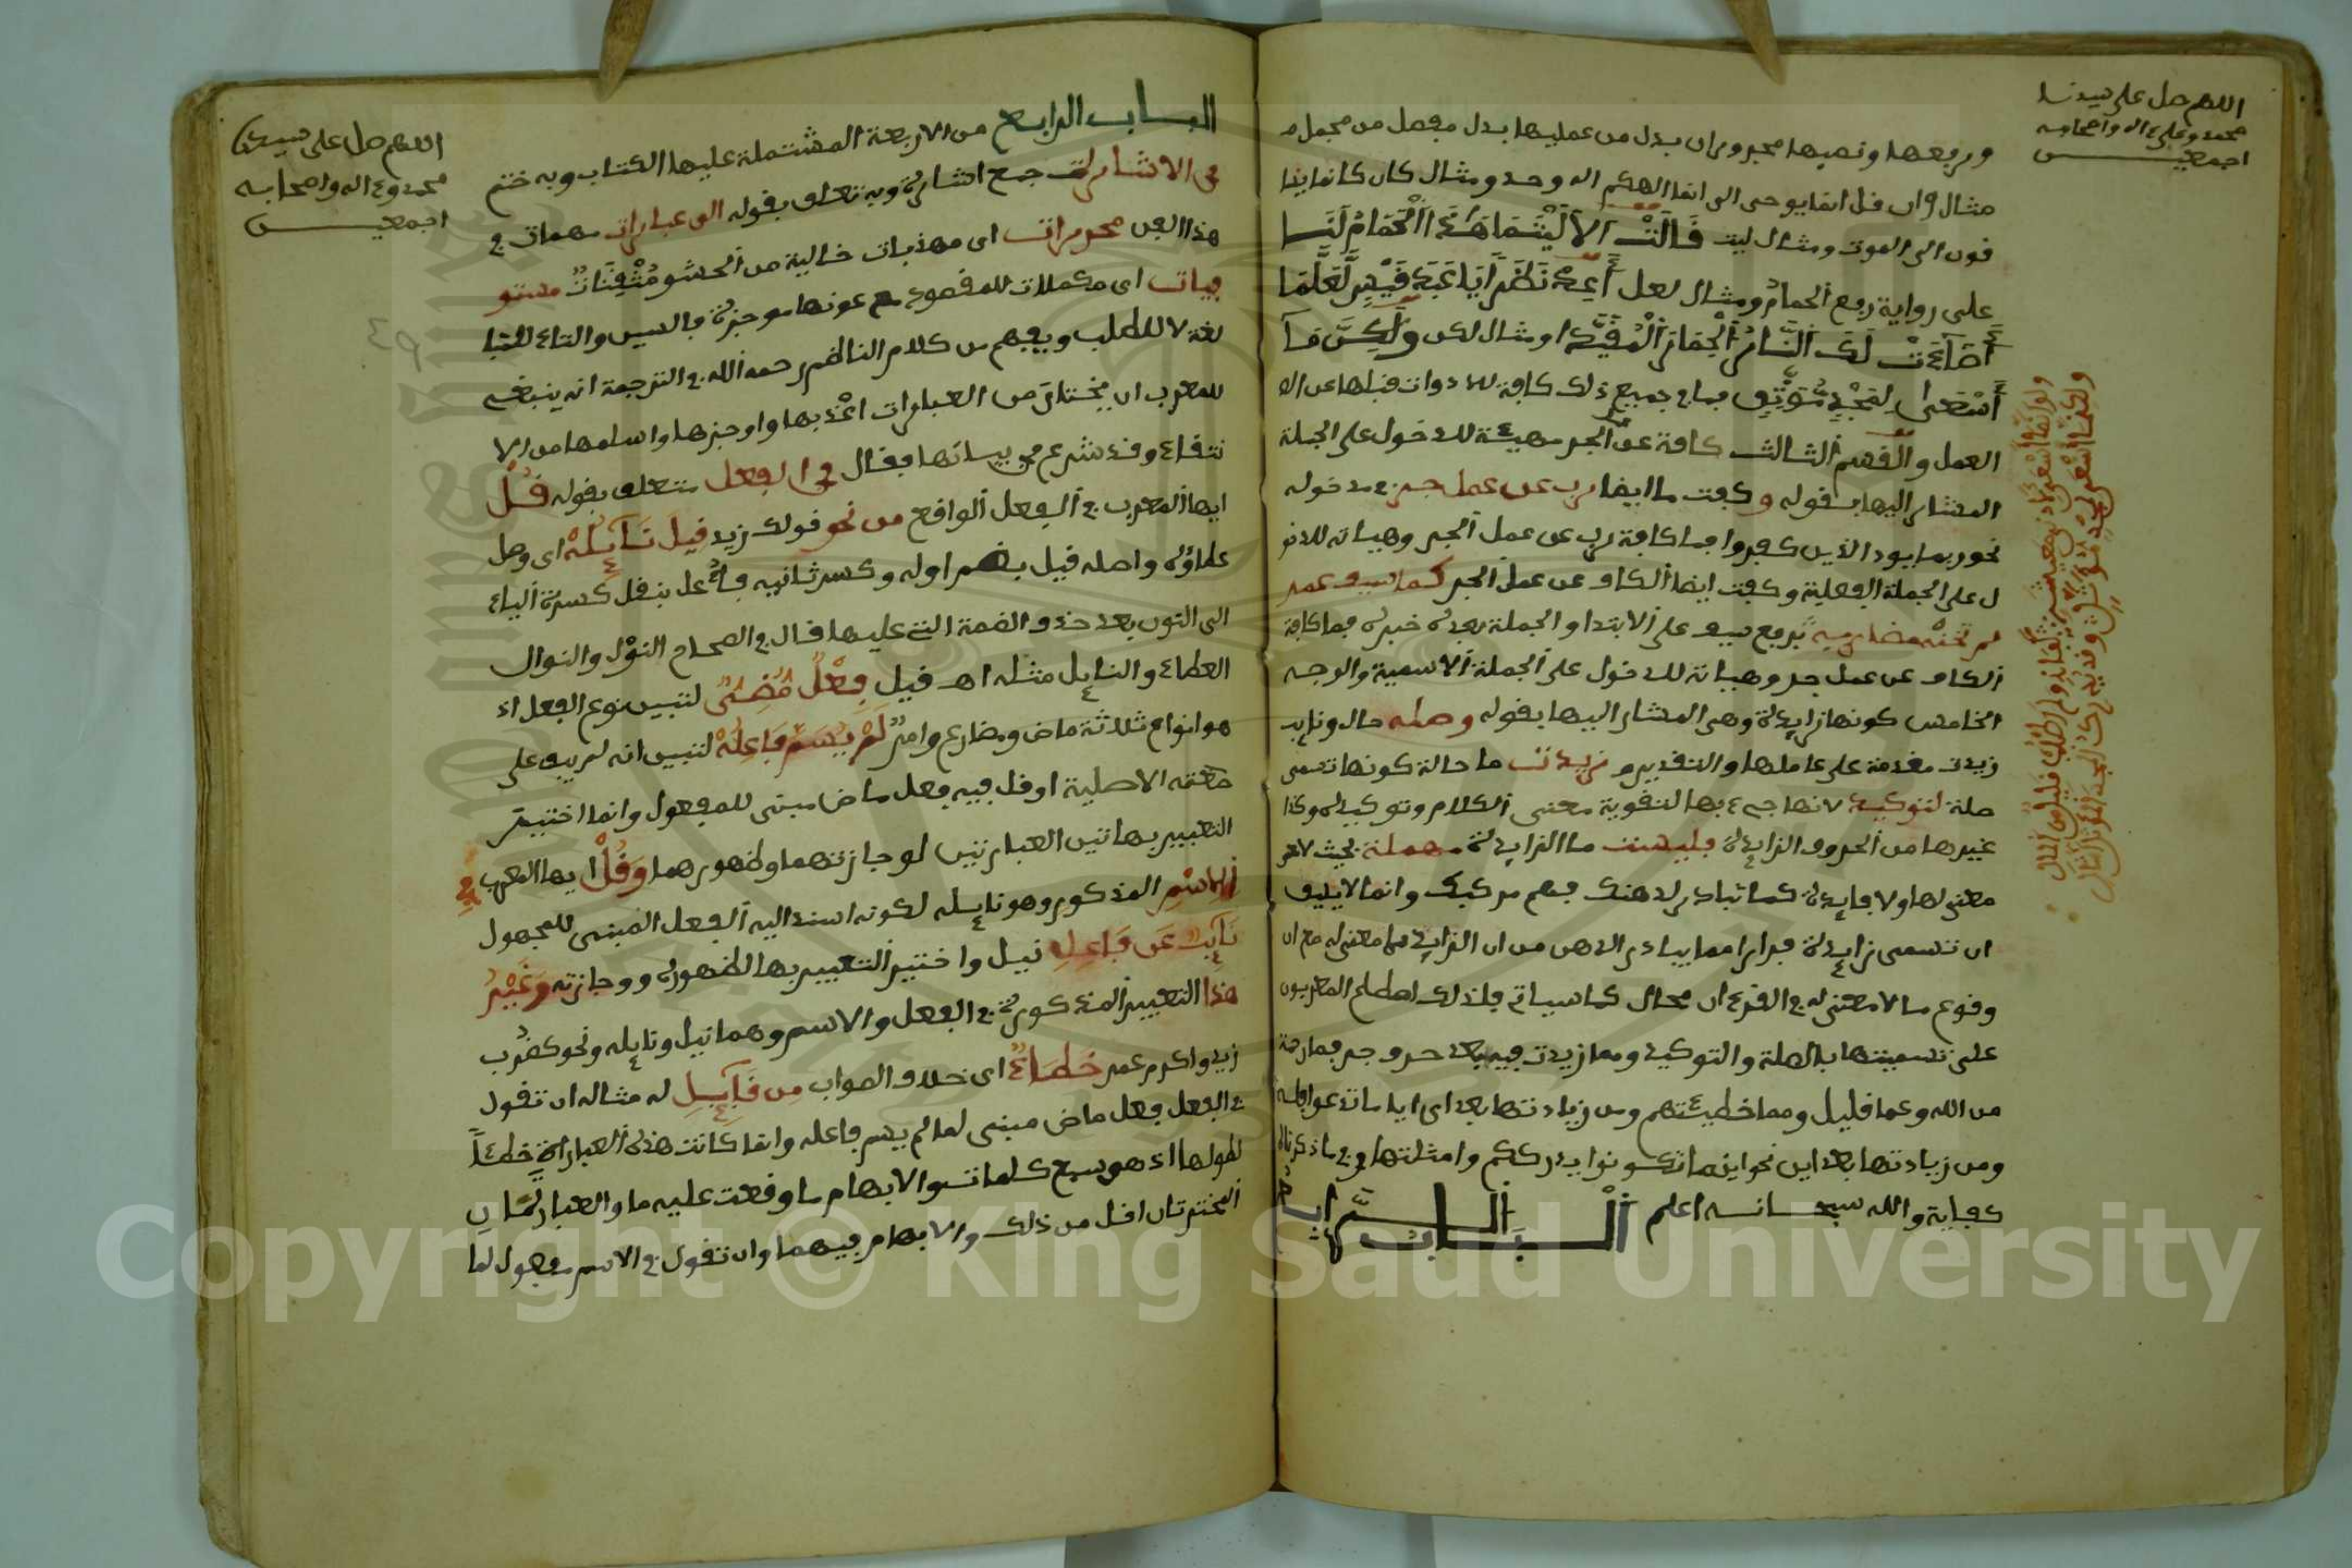 اللهم صل على سيدنا
محمد وعلى ءاله واصحابه
اجمعيـــــن
ورفعها ونصبها مجروران بدل من عمليها بدل مفصل من مجمل
مثال ان قل انما يوحى الى انما الهكم اله وحد ومثال كان كانما
قون الى الموت ومثال ليت قَالَتْ الَا لَيْتَمَا هَذَا الْحَمَامُ لَنَــا
على رواية رفع الحمام ومثال لعل أَعِدْ نَظَرًا يَا عَبْدَ قَيْسٍ لَعَلَّمَا
أَضَاءَتْ لَكَ النَّارُ الْحِمَارَ الْمُقَيَّدَا ومثال لكن وَلَكِنَّمَا
أَسْعَى لِمَجْدٍ مُؤَثَّلٍ فما في جميع ذلك كافة للادوات قبلها عن
العمل والقسم الثالث كافة عن الجر مهيئة للدخول على الجملة
المشار اليها بقوله وكفت ما ايضا رب عن عمل جر في مدخوله
نحو ربما يود الذين كفروا فما كافة رب عن عمل الجر وهياته للدخو
ل على الجملة الفعلية وكفت ايضا الكاف عن عمل الجر كما سيف عمر
لم تخنه مضاربه برفع سيف على الابتدا والجملة بعده خبره فما كافة
الكاف عن عمل جر وهياته للدخول على الجملة الاسمية والوجه
الخامس كونها زايدة وهى المشار اليها بقوله وصله حال ونايب
زيدت مقدمة على عاملها والتقدير وزيدت ما حالة كونها تسمى
صلة لتوكيد لانها جىء بها لتقوية معنى الكلام وتوكيده وكذا
غيرها من الحروف الزايدة فليست ما الزايدة مهملة بحيث لا
معنى لها ولا فايدة كما تبادر لذهنك فهم مركبك وانما لا يليق
ان تسمى زايدة فرارا مما يبادر الذهن من ان الزايد ما لا معنى له مع ان
وقوع ما لا معنى له في القرءان محال كما سياتى فلذلك اصطلح المعربون
على تسميتها بالصلة والتوكيد ومما زيدت فيه بعد حرف جر فبما رحمة
من الله وعما قليل ومما خطيئتهم ومن زيادتها بعد اى ايا ما تدعوا فله
ومن زيادتها بعد اين نحو اينما تكونوا يدرككم وامثلتها وفي ما ذكرناه
كفاية والله سبحــانــه اعلم الباب الرابـع
ولو انما اسعى لادنى معيشة كفانى ولم اطلب قليل من المال
ولكنما اسعى لمجد مؤثل وقد يدرك المجد المؤثل امثالى
اللهم صل على سيدنا
محمد وءاله واصحابه
اجمعيــــن
البــاب الرابـع من الاربعة المشتملة عليها الكتاب وبه ختم
فى الاشارات جمع اشارة وبه تعلق بقوله الى عبارات مهمات في
هذا الفن محررات اى مهذبات خالية من الحشو مُتْقَنَاتٌ مستو
فيات اى مكملات للمقصود مع كونها موجزة فالسين والتاء للمبا
لغة لا للطلب ويفهم من كلام الناظم رحمه الله في الترجمة انه ينبغى
للمعرب ان يختار من العبارات اعذبها واوجزها واسلمها من الا
نتقاء وقد شرع فى بيانها فقال فى الفعل متعلق بقوله قُــلْ
ايها المعرب في الفعل الواقع من نحو قولك زيد قيلَ نَائِلُهْ اى وصل
عطاؤه واصله قيل بضم اوله وكسر ثانيه فاعل بنقل كسرة الياء
الى النون بعد حذف الضمة التى عليها قال في الصحاح النول والنوال
العطاء والنايل مثله اهـ قيل فِعْلٌ مُضِىٌّ لتبيين نوع الفعل اذ
هو انواع ثلاثة ماض ومضارع وامر لَمْ يُسَمَّ فَاعِلُهْ لتبيين انه لم يبق على
صيغته الاصلية او قل فيه فعل ماض مبنى للمفعول وانما اختير
التعبير بهاتين العبارتين لوجازتهما وظهورهما وَقُلْ ايها المعرب فِى
الاسْمِ المذكور وهو نايله لكونه اسند اليه الفعل المبنى للمجهول
نَائِبٌ عَن فَاعِلِ نيل واختير التعبير بها لظهوره ووجازته وَغَيْرُ
هَذا التعبير المذكور في الفعل والاسم وهما نيل ونايله ونحو كضُرب
زيد واكرم عمر خَطَاءٌ اى خلاف الصواب مِن قَائِــلِ له مثاله ان تقول
في الفعل فعل ماض مبنى لما لم يسم فاعله وانما كانت هذه العبارة خطئا
لطولها اذ هو سبع كلمات سوا الابهام ما وقعت عليه ما والعبارتان
المختارتان اقل من ذلك ولا ابهام فيهما وان تقول في الاسم مفعول لما
Copyright © King Saud University